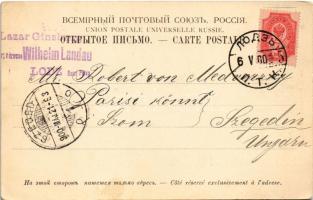 ВСЕМІРНЫЙ ПОЧТОВЫЙ СОЮЗЪ. РОССІЯ.
UNION POSTALE UNIVERSELLE RUSSIE.
ОТКРЫТОЕ ПИСЬМО. — CARTE POSTALE
Lazar
Wilhelm Landau
LODZ
ЛОДЗЬ
6 V 00
П.Т.К.
Robert von
Párisi
Szegedin
Ungarn
SZEGED
На этой сторонѣ пишется только адресъ. — Côté réservé exclusivement à l'adresse.